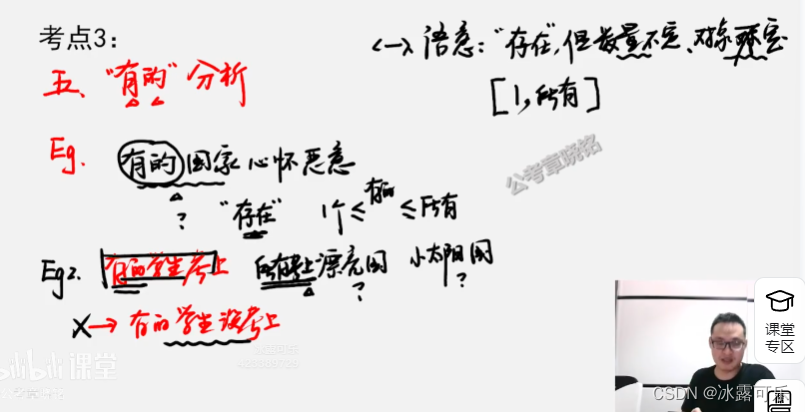 考点3：
<一> 语意："存在"，但数量不定、对象不定
五、"有的"分析
[1，所有]
Eg. 有的国家心怀恶意
? "存在" 1个≤有的≤所有
公考章晓铭
Eg2. 有的学生考上 所有考上 漂亮国 小太阳国
? ?
X→有的学生没考上
bilibili课堂
课堂
专区
CSDN @冰露可乐